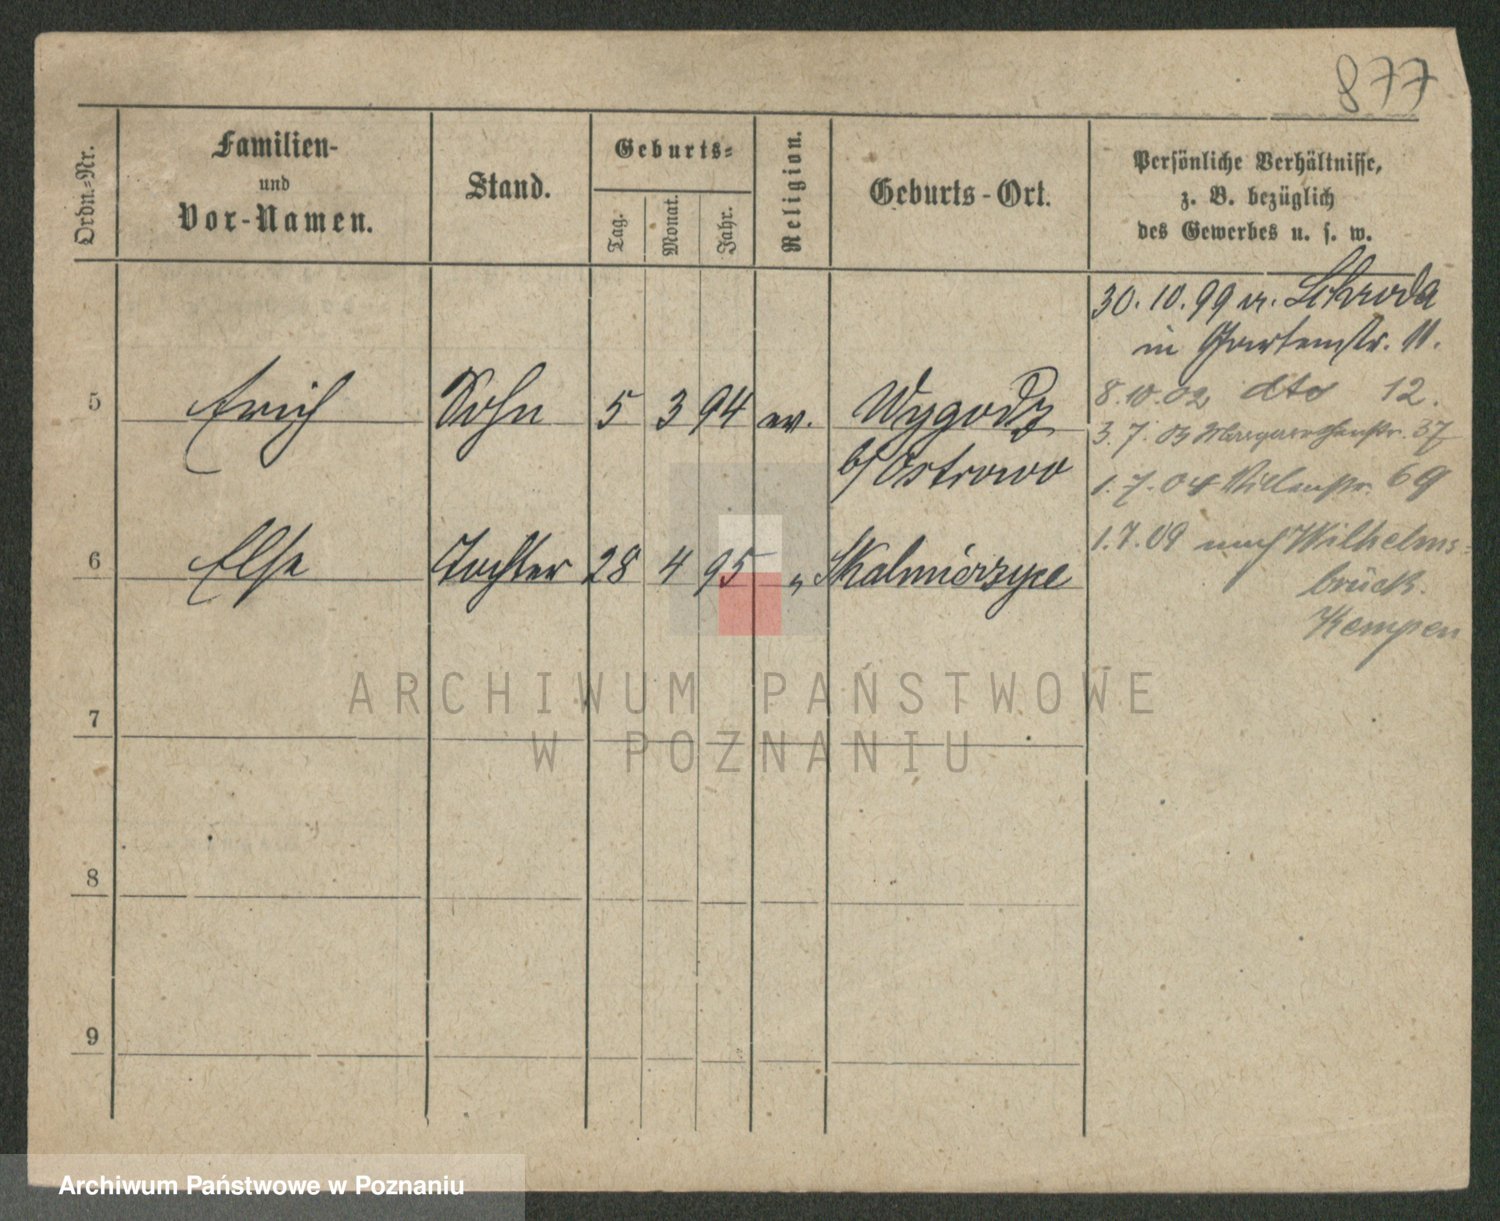 877
Ordn.-Nr.
Familien-
und
Vor-Namen.
Stand.
Geburts-
Tag.
Monat.
Jahr.
Religion.
Geburts-Ort.
Persönliche Verhältnisse,
z. B. bezüglich
des Gewerbes u. s. w.
30.10.99 v. Schroda
in Gartenstr. 11.
8.10.02 dto 12.
3.7.03 Margarethenstr. 37
1.7.04 Villenstr. 69
1.7.09 nach Wilhelms-
brück.
Kempen
5 Erich Sohn 5 3 94 ev. Wygoda
b/Ostrowo
6 Else Tochter 28 4 95 " Skalmierzyce
7
8
9
ARCHIWUM PAŃSTWOWE
W POZNANIU
Archiwum Państwowe w Poznaniu